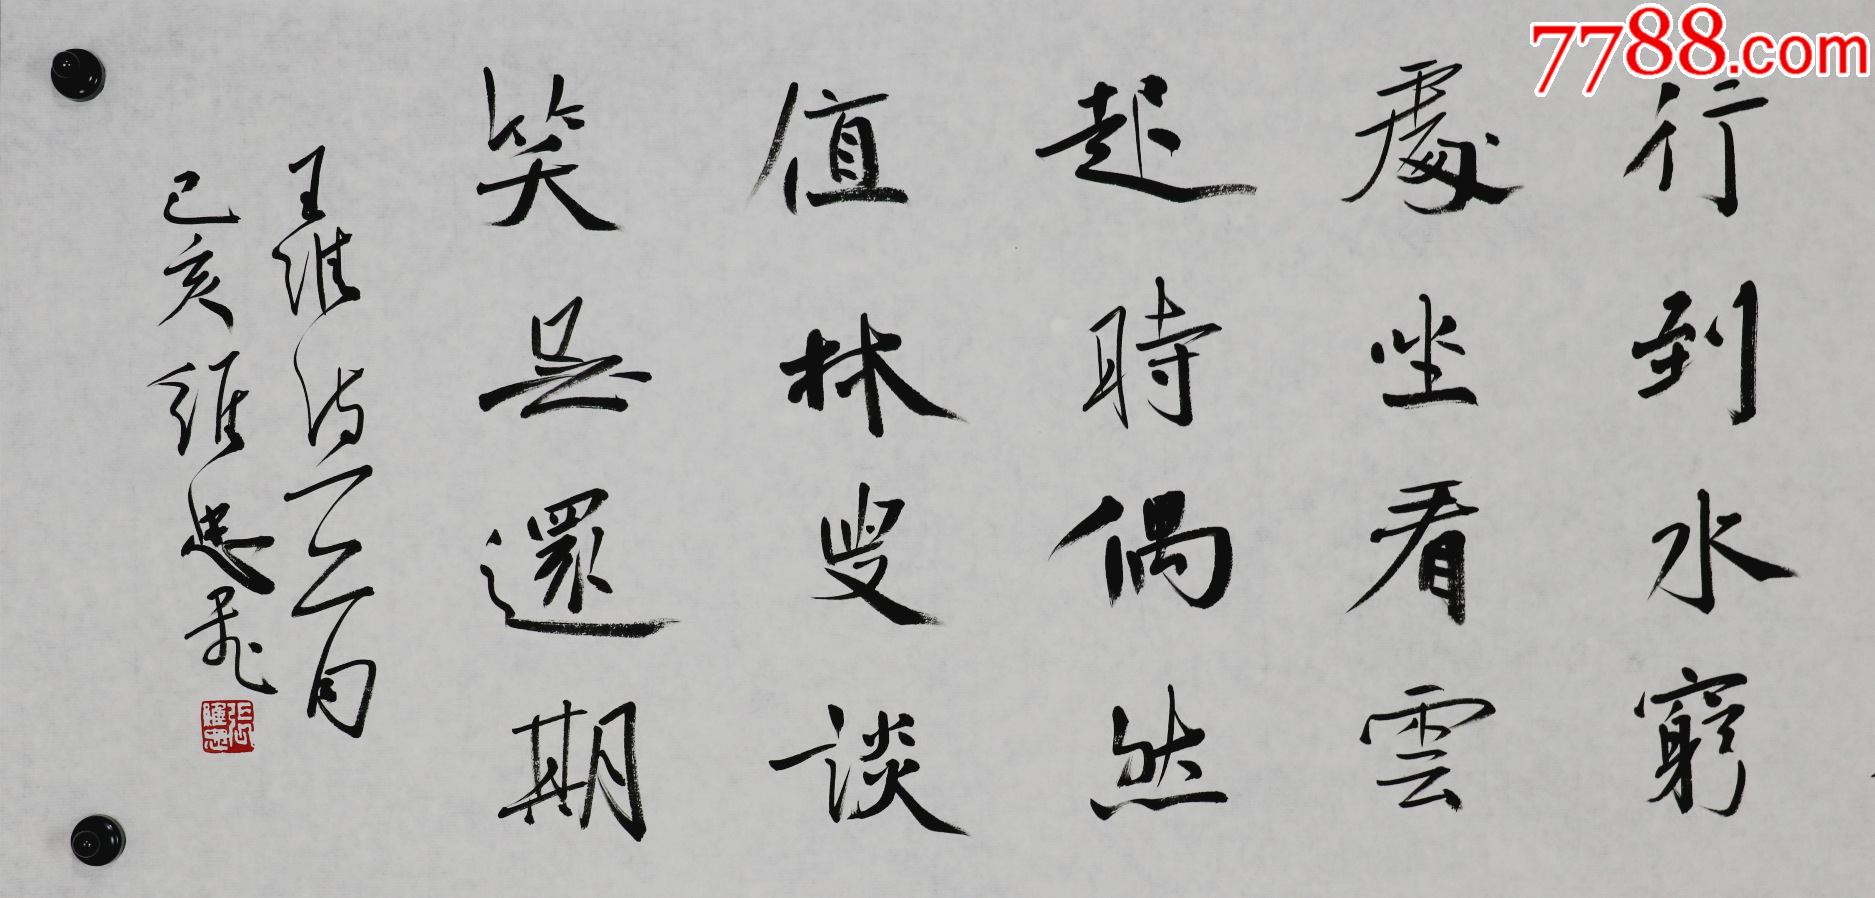 行到水窮
處坐看雲
起時偶然
值林叟談
笑無還期
王維詩句
己亥維忠書
張維忠
7788.com